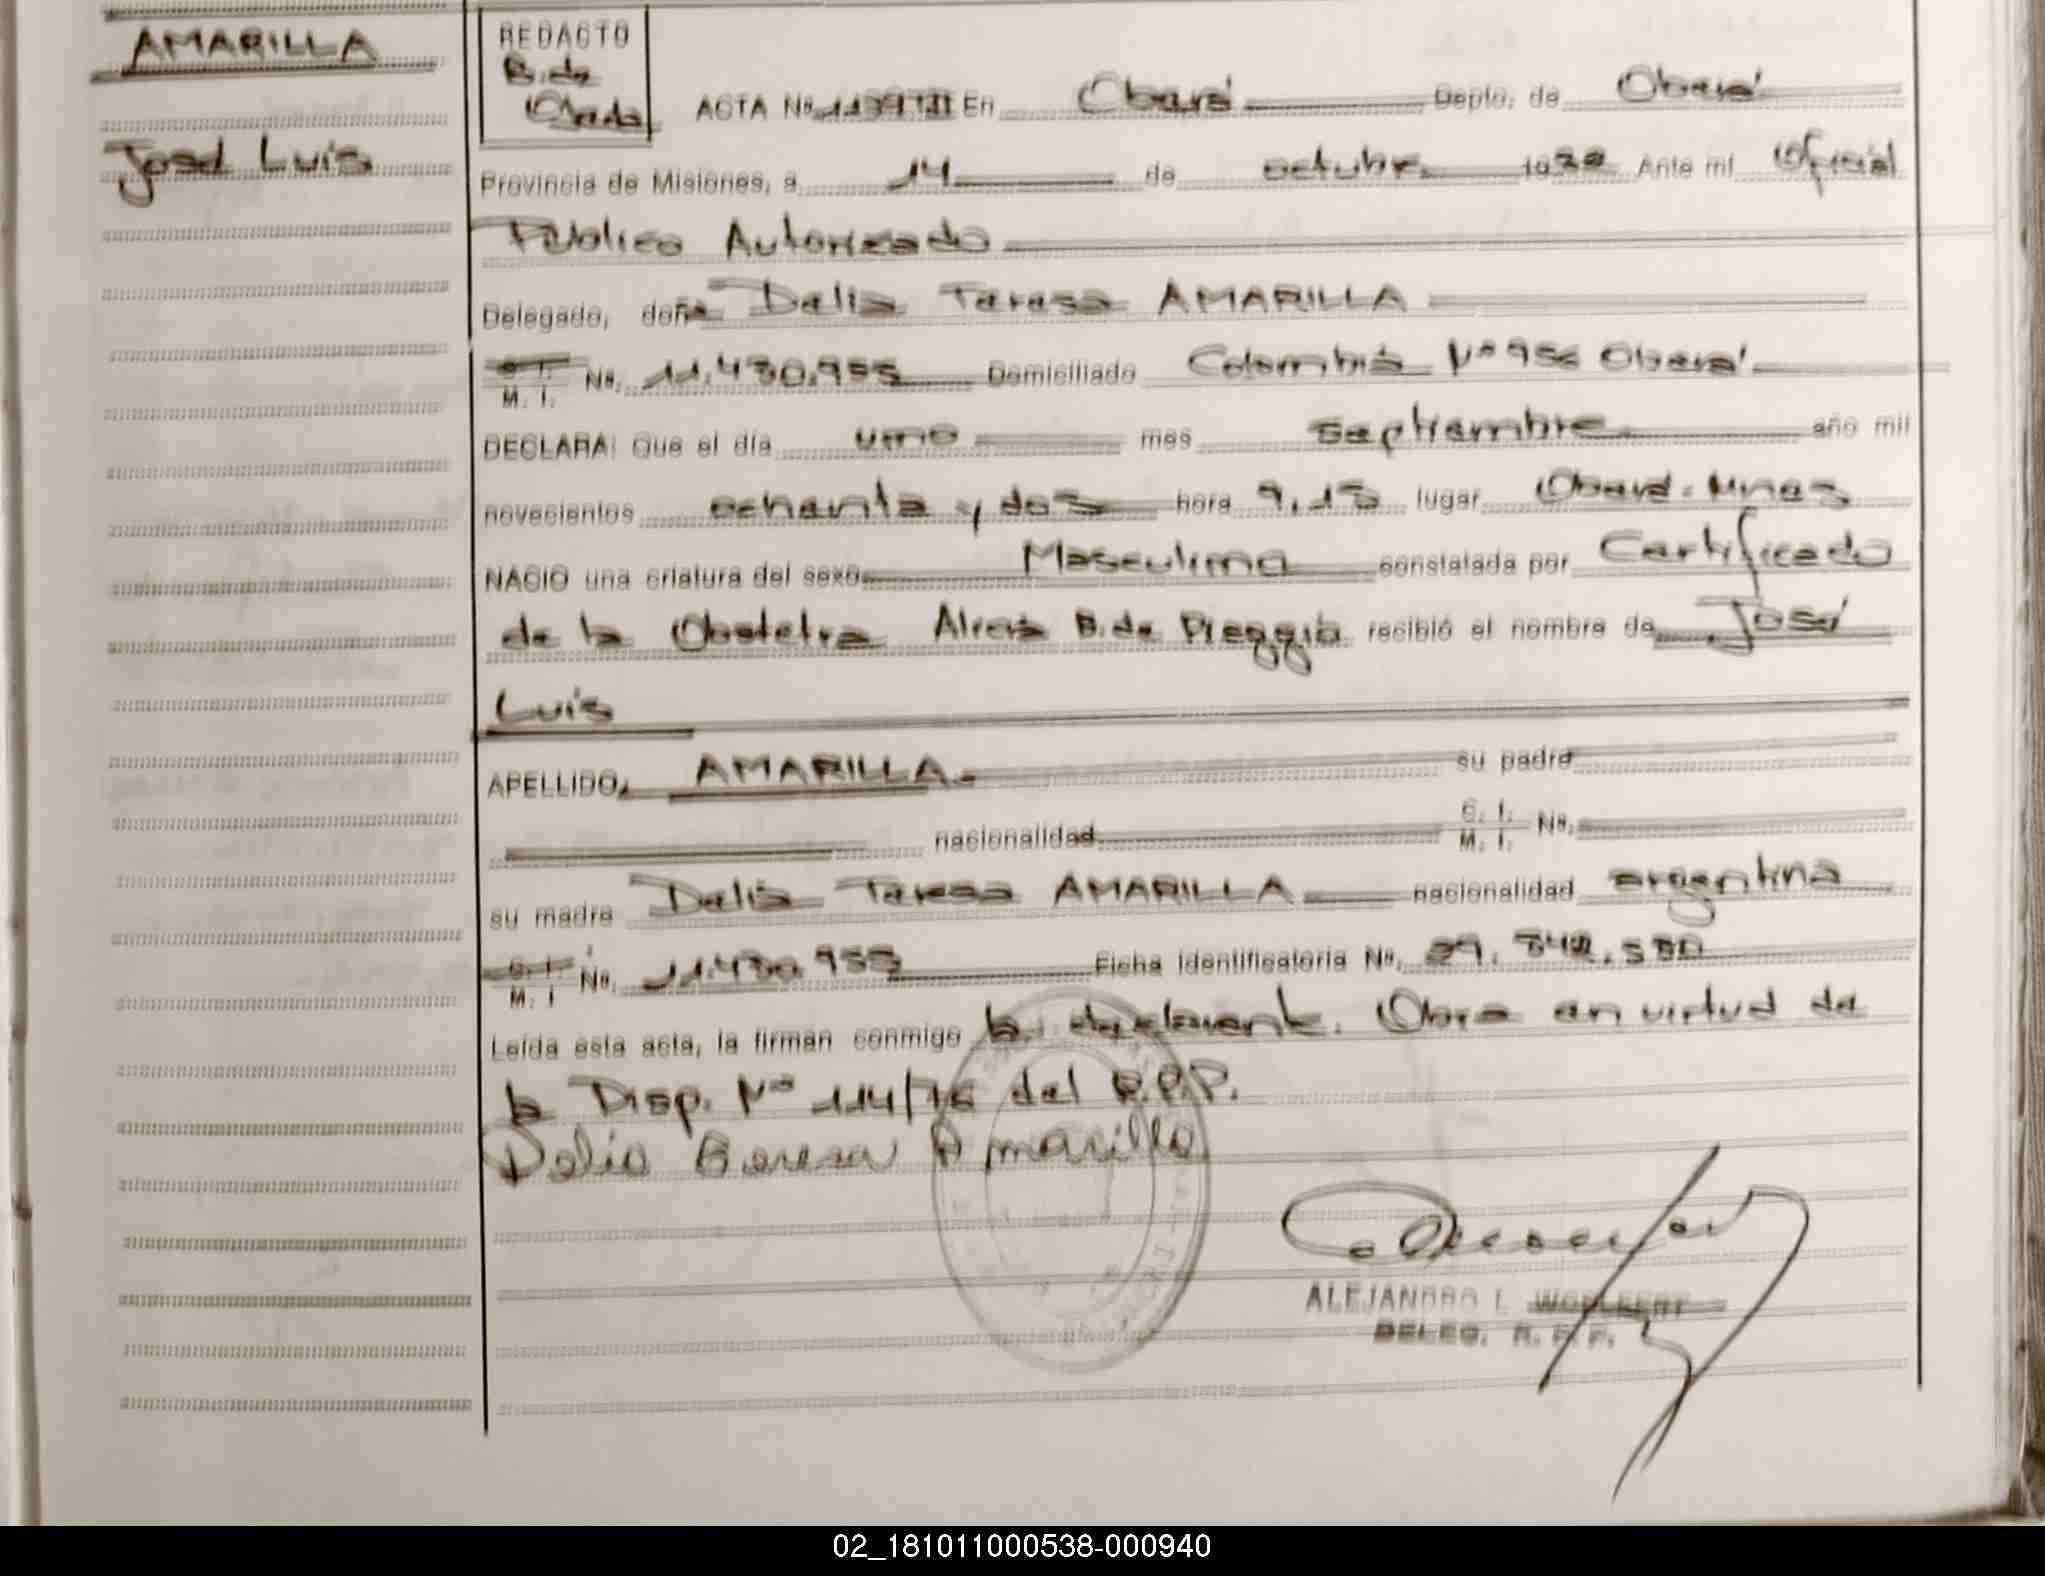 AMARILLA
José Luis
REDACTO
B. de
Ojeda
ACTA Nº En Oberá Depto. de Oberá
Provincia de Misiones, a 14 de octubre 19 Ante mí Oficial
Público Autorizado
Delegado, doña Delia Teresa AMARILLA
C. I. M. I. No. 11.430.955 Domiciliado Colombia Nº 956 Oberá
DECLARA: Que el día uno mes septiembre año mil
novecientos ochenta y dos hora 9,15 lugar Oberá. Mnes
NACIO una criatura del sexo Masculino constatada por Certificado
de la Obstetra B. de recibió el nombre de José
Luis
APELLIDO AMARILLA.- su padre
nacionalidad C. I. M. I. No.
su madre Delia Teresa AMARILLA nacionalidad argentina
C. I. M. I No. 11.430.955 Ficha Identificatoria No. 29.
Leída esta acta, la firman conmigo la declarante. Obra en virtud de
la Disp. Nº 114/76 del R.P.P.
Delia Teresa Amarilla
ALEJANDRO L
DELEG. R. P. P.
02_181011000538-000940